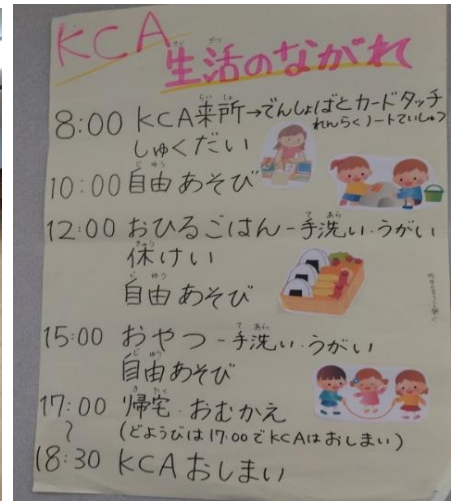 KCA
生活のながれ
8:00 KCA来所→でんしょばとカードタッチ
れんらくノートていしゅつ
しゅくだい
10:00 自由あそび
12:00 おひるごはん-手洗い・うがい
休けい
自由あそび
15:00 おやつ-手洗い・うがい
自由あそび
17:00 帰宅・おむかえ
〜 (どようびは17:00でKCAはおしまい)
18:30 KCAおしまい